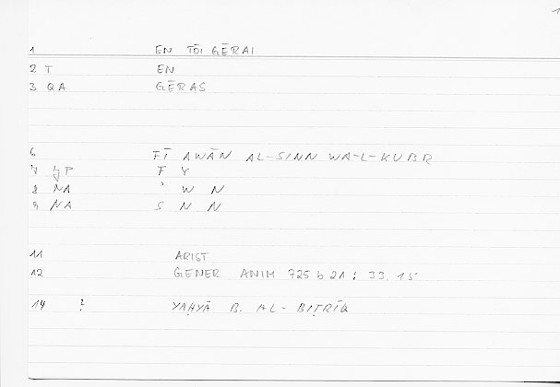 1
1 EN TŌI GĒRAI
2 T EN
3 QA GĒRAS
6 FĪ AWĀN AL-SINN WA-L-KUBR
7 P F Y
8 NA ʾ W N
9 NA S N N
11 ARIST
12 GENER ANIM 725 b 21 ; 33.15
14 ? YAḤYĀ B. AL-BIṬRĪQ